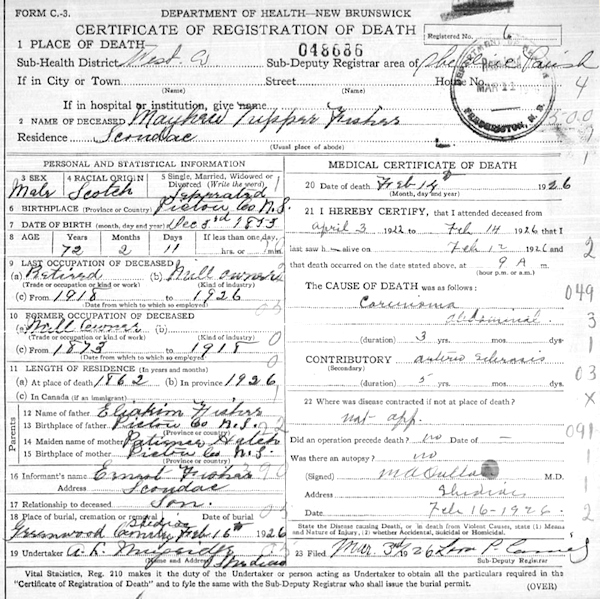 FORM C.-3.
DEPARTMENT OF HEALTH—NEW BRUNSWICK
CERTIFICATE OF REGISTRATION OF DEATH
Registered No. 6
1 PLACE OF DEATH
048686
Sub-Health District West. Co
Sub-Deputy Registrar area of Parish
If in City or Town
Street
House No. 4
(Name)
(Name)
MAR 22
FREDERICTON, N. B.
If in hospital or institution, give name
2 NAME OF DECEASED Mayhew Tupper Fisher
Residence Scoudac
(Usual place of abode)
PERSONAL AND STATISTICAL INFORMATION
3 SEX
4 RACIAL ORIGIN
5 Single, Married, Widowed or Divorced (Write the word)
Male Scotch Seperated
6 BIRTHPLACE (Province or Country) Pictou Co N.S.
7 DATE OF BIRTH (month, day and year) Dec 3rd 1853
8 AGE Years Months Days If less than one day,
72 2 11 hrs. or min.
9 LAST OCCUPATION OF DECEASED
(a) Retired (b) Mill owner
(Trade or occupation or kind of work) (Kind of industry)
(c) From 1918 to 1926
(Date from which to which employed)
10 FORMER OCCUPATION OF DECEASED
(a) Mill owner (b)
(Trade or occupation or kind of work) (Kind of industry)
(c) From 1873 to 1918
(Date from which to which employed)
11 LENGTH OF RESIDENCE (In years and months)
(a) At place of death 1862 (b) In province 1926
(c) In Canada (if an immigrant)
Parents
12 Name of father Eliakim Fisher
13 Birthplace of father Pictou Co N.S.
(Province or country)
14 Maiden name of mother
15 Birthplace of mother Pictou Co N.S.
(Province or country)
16 Informant's name Ernest Fisher
Address Scoudac
17 Relationship to deceased Son.
18 Place of burial, cremation or removal Date of burial
Shediac
Greenwood Feb 16th 1926
19 Undertaker A. K.
Address Shediac
MEDICAL CERTIFICATE OF DEATH
20 Date of death Feb 14th 1926
(Month, day and year)
21 I HEREBY CERTIFY, that I attended deceased from
april 3 1922 to Feb 14 1926 that I
last saw h— alive on Feb 12 1926 and
that death occurred on the date stated above, at 9 A m.
(hour p.m. or a.m.)
The CAUSE OF DEATH was as follows:
049
Carcinoma
abdominal
(duration) 3 yrs. mos. dys.
CONTRIBUTORY arterio sclerosis
(Secondary)
(duration) 5 yrs. mos. dys.
22 Where was disease contracted if not at place of death?
not app.
091
Did an operation precede death? no Date of —
Was there an autopsy? no
(Signed) M.D.
Address Shediac
Date Feb 16-1926.
State the Disease causing Death, or in death from Violent Causes, state (1) Means and Nature of Injury, (2) whether Accidental, Suicidal or Homicidal.
23 Filed Mar. 3rd 1926
Sub-Deputy Registrar
Vital Statistics, Reg. 210 makes it the duty of the Undertaker or person acting as Undertaker to obtain all the particulars required in the "Certificate of Registration of Death" and to fyle the same with the Sub-Deputy Registrar who shall issue the burial permit.
(OVER)